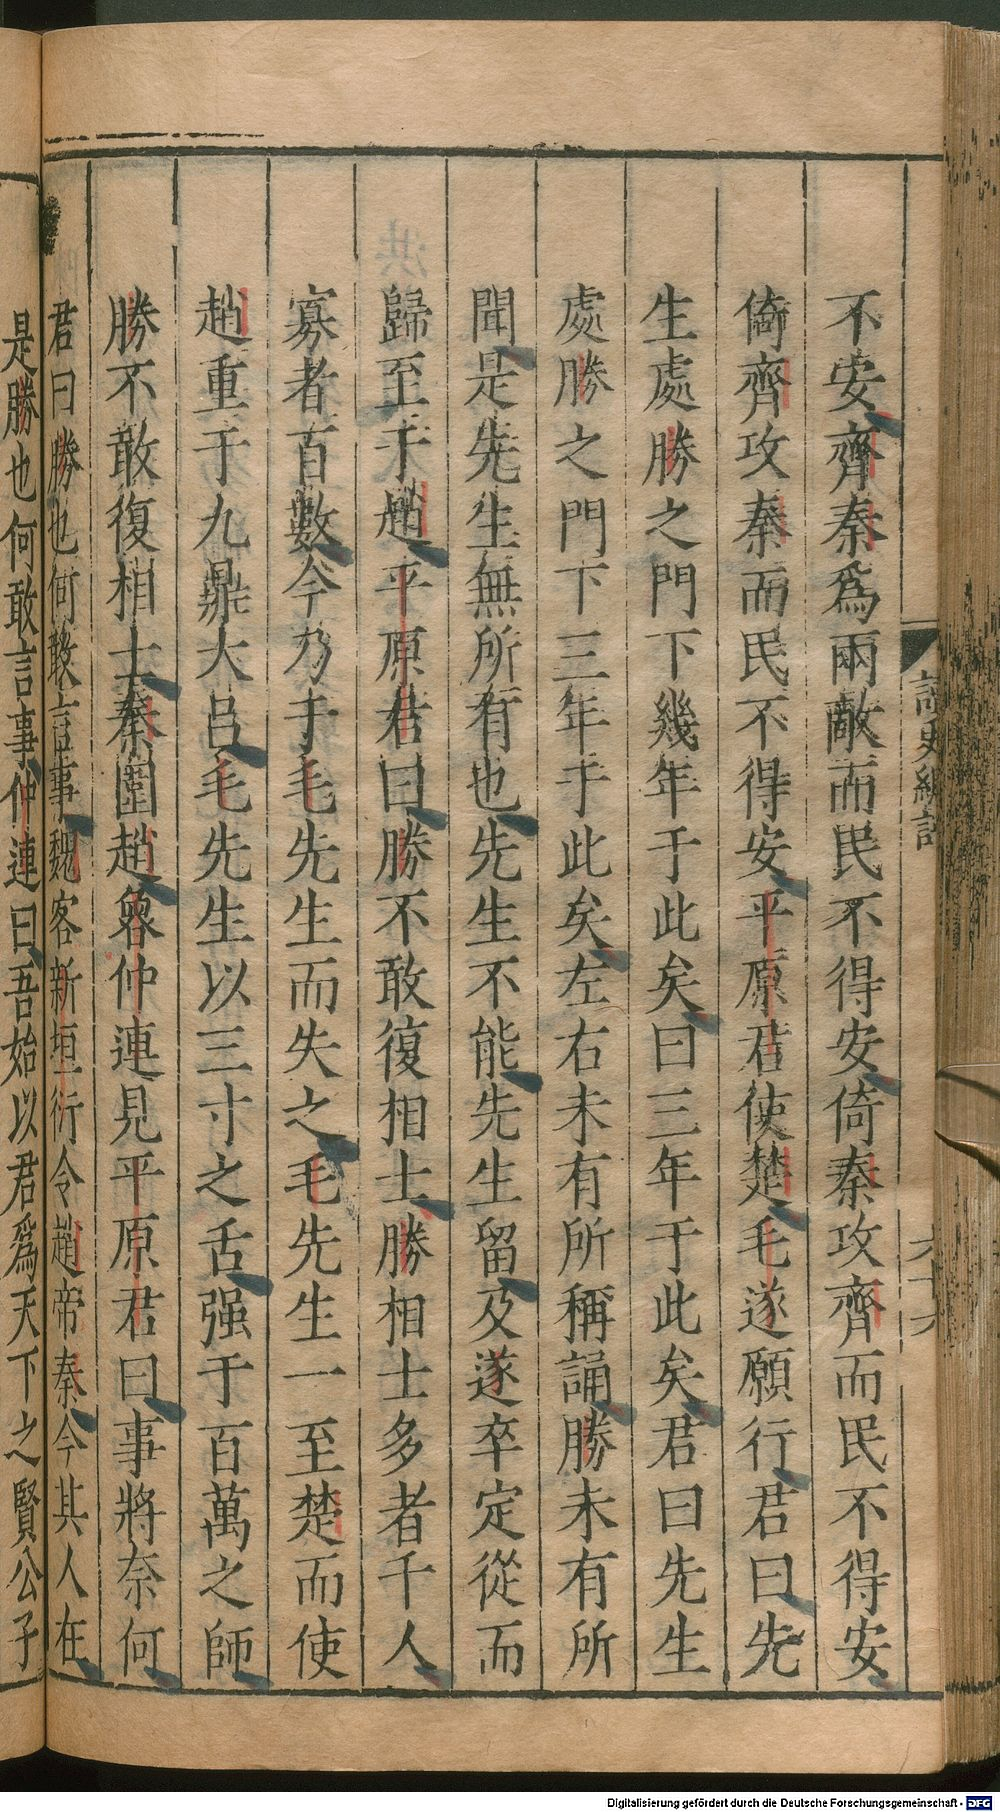 不安齊秦爲兩敵而民不得安倚秦攻齊而民不得安
倚齊攻秦而民不得安平原君使楚毛遂願行君曰先
生處勝之門下幾年于此矣曰三年于此矣君曰先生
處勝之門下三年于此矣左右未有所稱誦勝未有所
聞是先生無所有也先生不能先生留及遂卒定從而
歸至于趙平原君曰勝不敢復相士勝相士多者千人
寡者百數今乃于毛先生而失之毛先生一至楚而使
趙重于九鼎大呂毛先生以三寸之舌强于百萬之師
勝不敢復相士秦圍趙魯仲連見平原君曰事將奈何
君曰勝也何敢言事魏客新垣衍令趙帝秦今其人在
是勝也何敢言事仲連曰吾始以君爲天下之賢公子
六十六
Digitalisierung gefördert durch die Deutsche Forschungsgemeinschaft - DFG